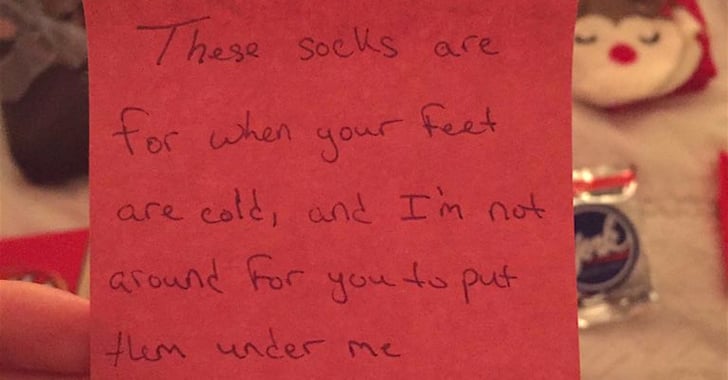 These socks are
for when your feet
are cold, and I'm not
around for you to put
them under me
York